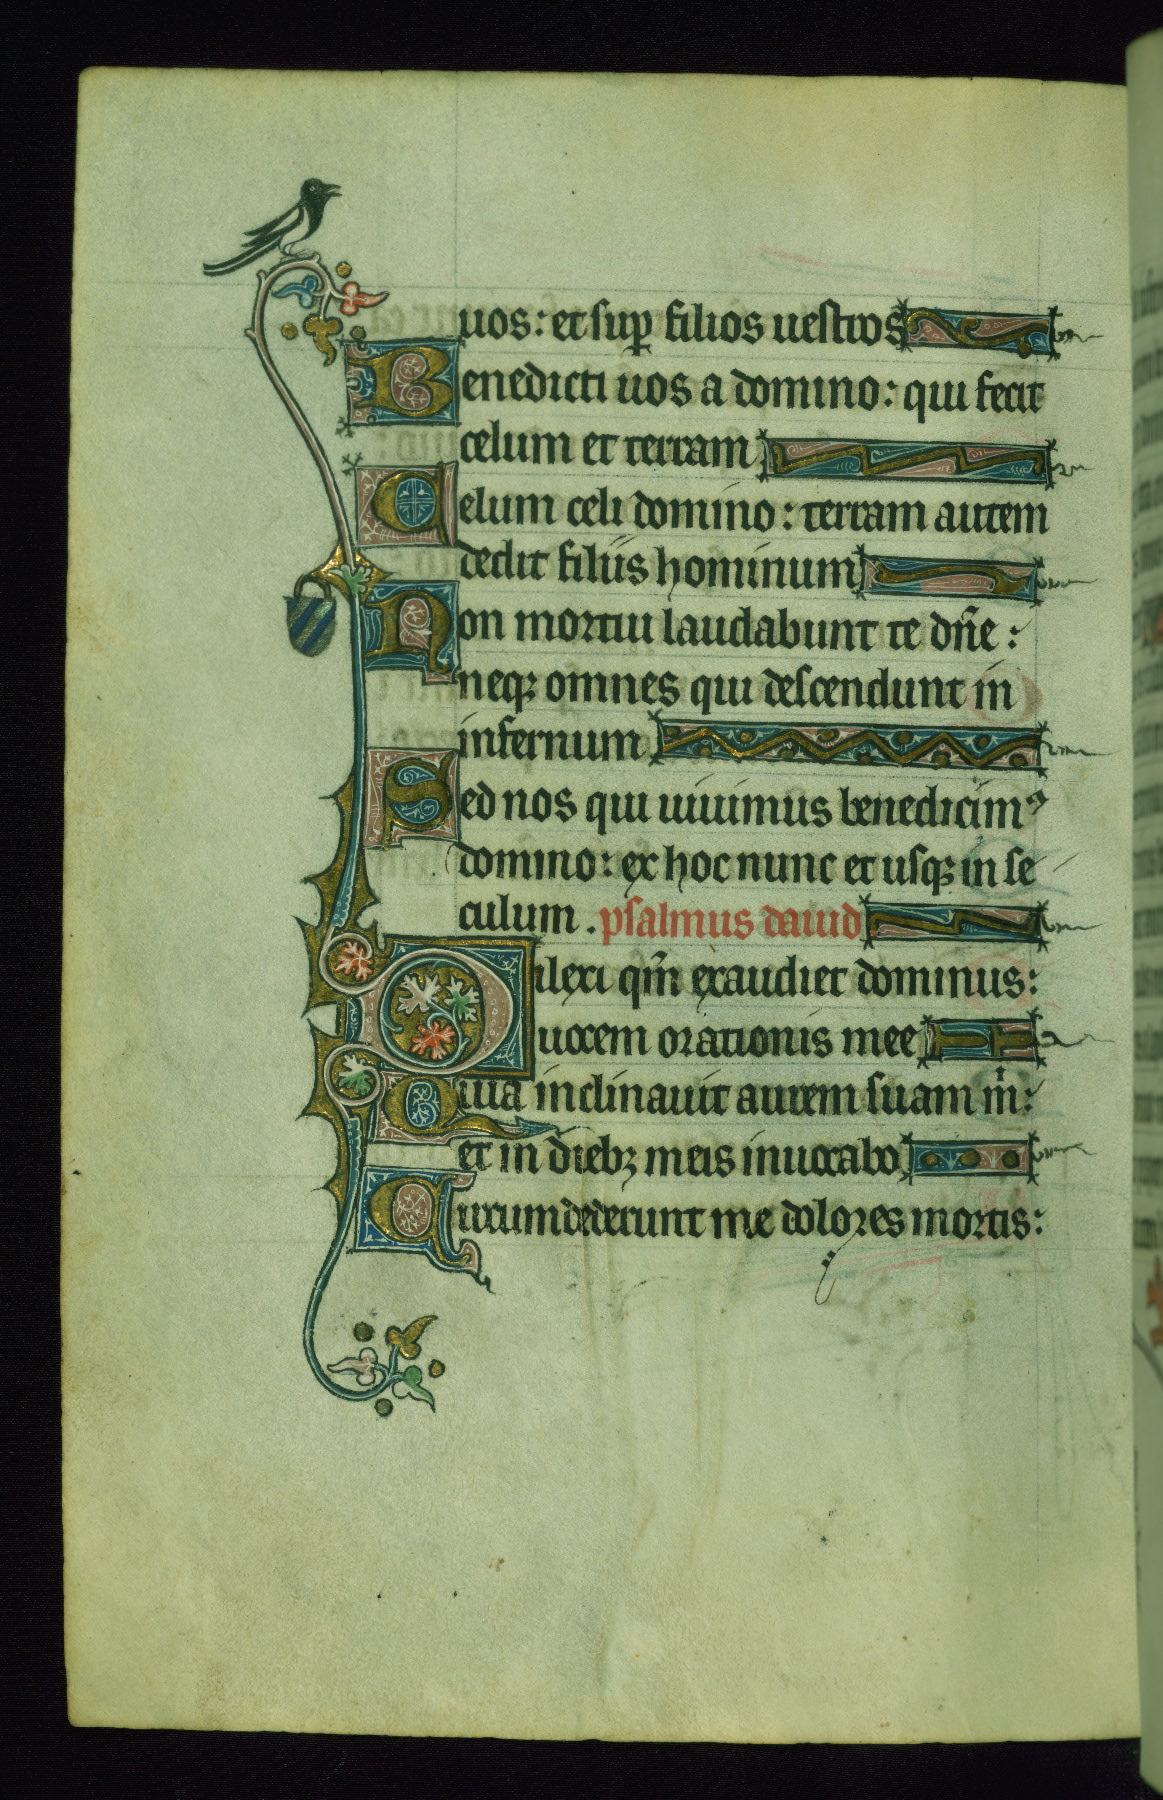 uos: et sup̱ filios uestros
Benedicti uos a domino: qui fecit
celum et terram
Celum celi domino: terram autem
dedit filiis hominum
Non mortui laudabunt te dn̄e:
neqꝫ omnes qui descendunt in
infernum
Sed nos qui uiuimus benedicimꝰ
domino: ex hoc nunc et usqꝫ in se
culum. psalmus dauid
Dilexi qm̄ exaudiet dominus:
uocem orationis mee
Quia inclinauit aurem suam m̄i:
et in diebꝫ meis inuocabo
Circumdederunt me dolores mortis: